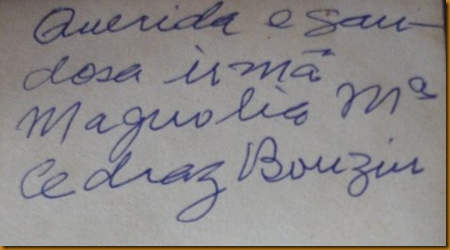 Querida e sau-
dosa irmã
Magnolia Mª
Cedraz Bouzin